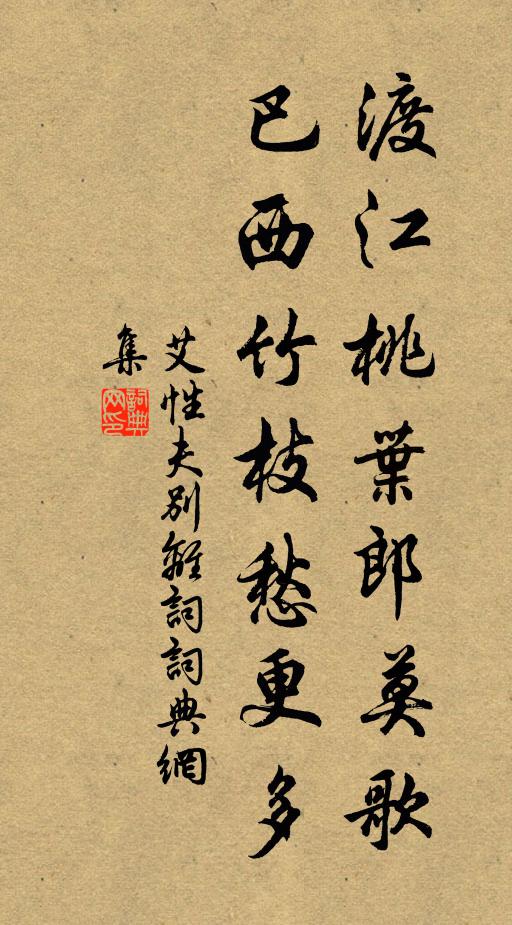 渡江桃葉郎莫歌
巴西竹枝愁更多
艾性夫別離詞詞典網
集
詞典網印